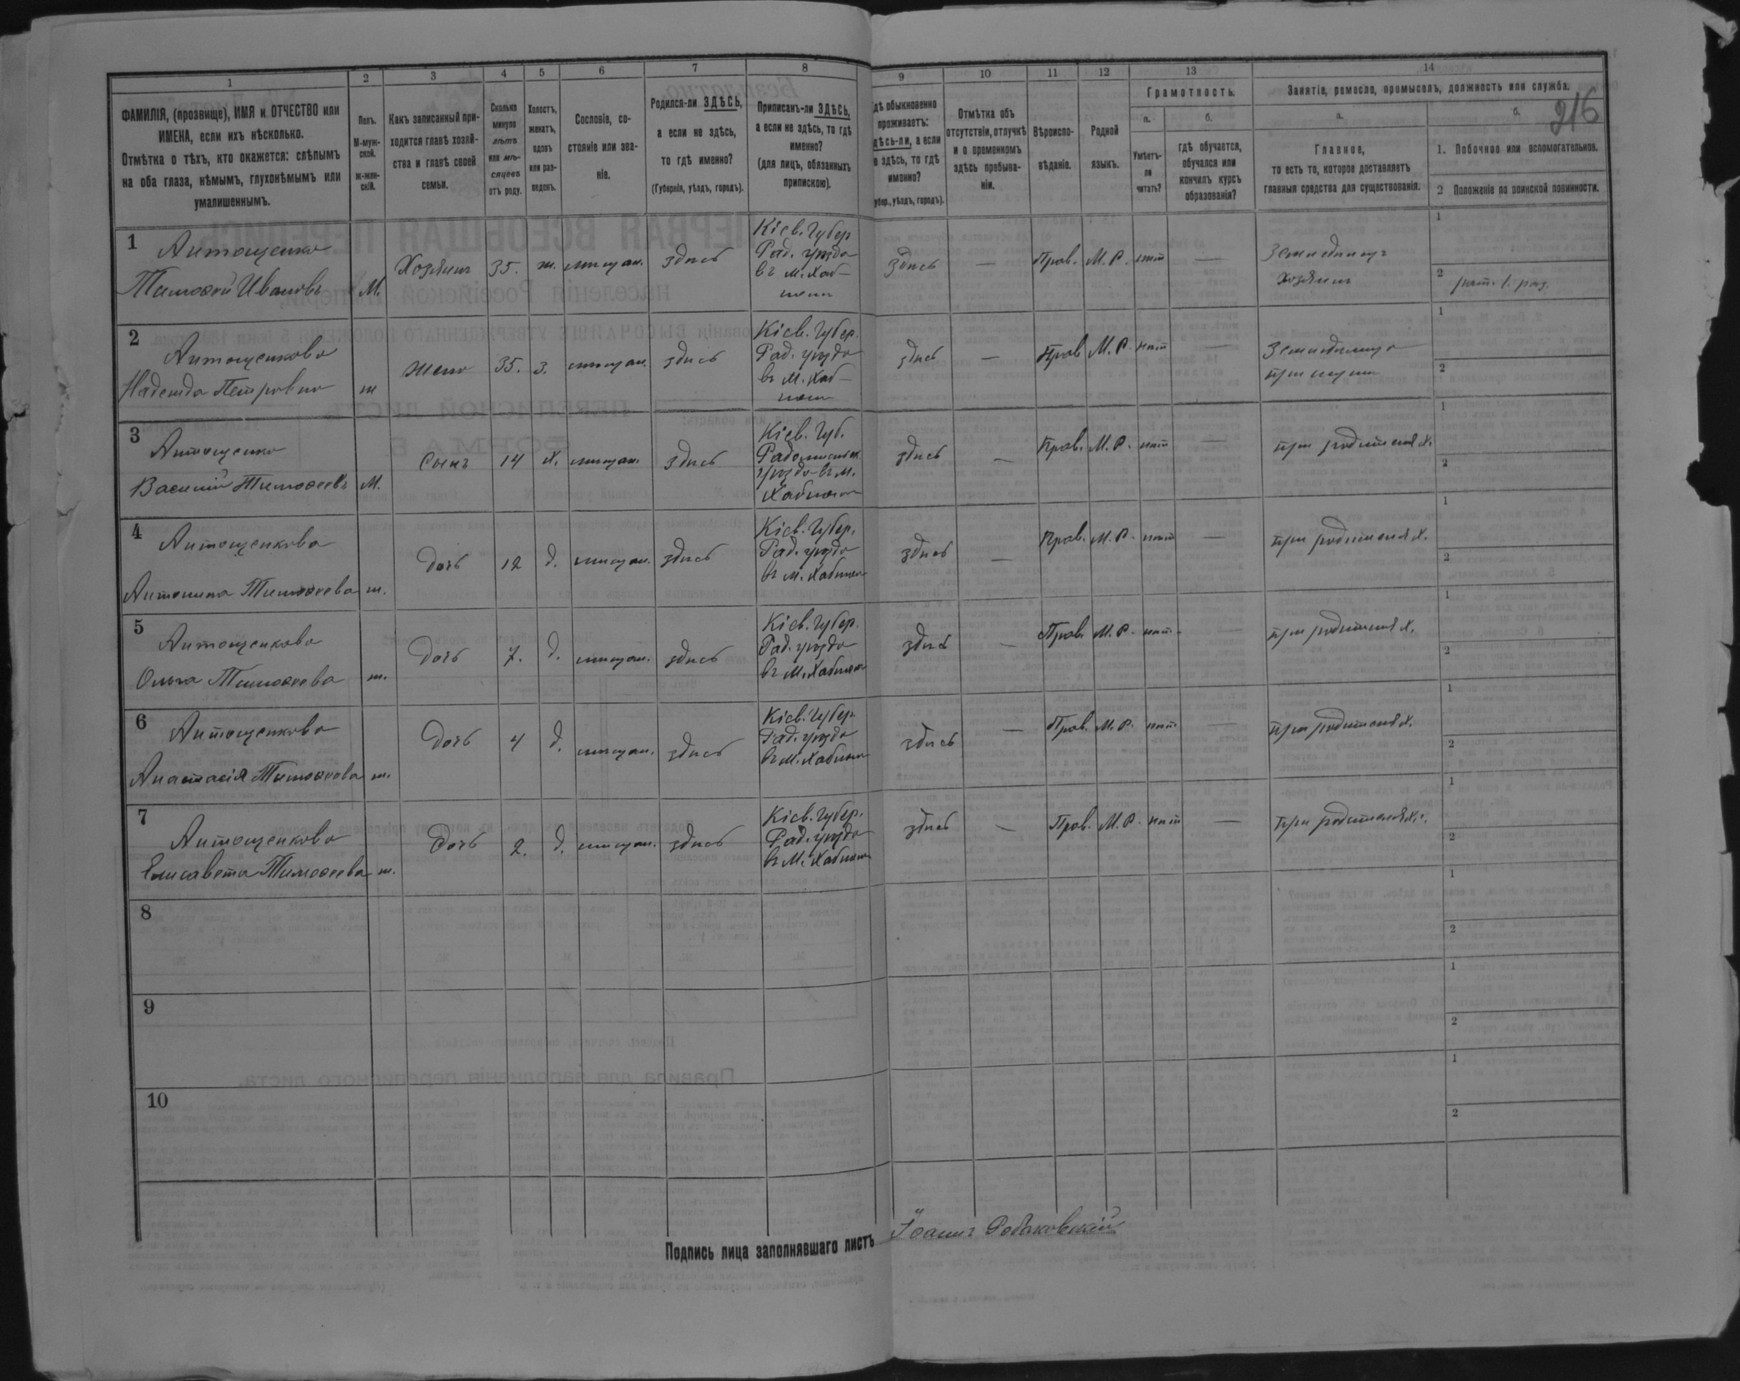 1 2 3 4 5 6 7 8 9 10 11 12 13 14
ФАМИЛІЯ, (прозвище), ИМЯ и ОТЧЕСТВО или
ИМЕНА, если ихъ нѣсколько.
Отмѣтка о тѣхъ, кто окажется: слѣпымъ
на оба глаза, нѣмымъ, глухонѣмымъ или
умалишеннымъ.
Полъ.
М-муж-
ской.
ж-жен-
скій.
Какъ записанный при-
ходится главѣ хозяй-
ства и главѣ своей
семьи.
Сколько
минуло
лѣтъ
или мѣ-
сяцевъ
отъ роду.
Холостъ,
женатъ,
вдовъ
или раз-
веденъ.
Сословіе, со-
стояніе или зва-
ніе.
Родился-ли ЗДѢСЬ,
а если не здѣсь,
то гдѣ именно?
(Губернія, уѣздъ, городъ).
Приписанъ-ли ЗДѢСЬ,
а если не здѣсь, то гдѣ
именно?
(для лицъ, обязанныхъ
припискою).
дѣ обыкновенно
проживаетъ:
дѣсь-ли, а если
е здѣсь, то гдѣ
именно?
убер., уѣздъ, городъ).
Отмѣтка объ
отсутствіи, отлучкѣ
и о временномъ
здѣсь пребыва-
ніи.
Вѣроиспо-
вѣданіе.
Родной
языкъ.
Грамотность.
а.
Умѣетъ-
ли
читать?
б.
гдѣ обучается,
обучался или
кончилъ курсъ
образованія?
Занятіе, ремесло, промыселъ, должность или служба.
а.
Главное,
то есть то, которое доставляетъ
главныя средства для существованія.
б.
216
1. Побочное или вспомогательное.
2 Положеніе по воинской повинности.
1 Антощенко
Тимоѳей Ивановъ М. Хозяинъ 35. ж. мѣщан. здѣсь
Кіев. Губер
Рад. уѣзда
въ м. Хаб-
номъ
здѣсь — Прав. М. Р. нѣт —
Земледѣлецъ
Хозяинъ
1
2 рат. 1. раз.
2 Антощенкова
Надежда Петровна ж жена 35. з. мѣщан. здѣсь
Кіев. Губер.
Рад. уѣзда
въ М. Хаб-
номъ
здѣсь — Прав М. Р. нѣт —
при мужѣ
1
2
3 Антощенко
Василій Тимоѳеевъ М. Сынъ 14 х. мѣщан. здѣсь
Кіев. Губ.
уѣзда въ м.
Хабномъ
здѣсь — Прав. М. Р. нѣт — при родителях.
1
2
4 Антощенкова
Антонина Тимоѳеева ж. дочь 12 д. мѣщан. здѣсь
Кіев. Губер.
Рад. уѣзда
въ М. Хабном
здѣсь — Прав. М. Р. нѣт — при родителях.
1
2
5 Антощенкова
Ольга Тимоѳеева ж. Дочь 7. д. мѣщан. здѣсь
Кіев. Губер.
Рад. уѣзда
въ М. Хабном
здѣсь — Прав. М. Р. нѣт. — при родителях.
1
2
6 Антощенкова
Анастасія Тимоѳеева ж. Дочь 4 д. мѣщан. здѣсь
Кіев. Губер
Рад. уѣзда
въ М. Хабном
здѣсь — Прав. М. Р. нѣт — при родителях.
1
2
7 Антощенкова
Елисавета Тимоѳеева ж. Дочь 2. д. мѣщан. здѣсь
Кіев. Губер.
Рад. уѣзда
въ М. Хабном
здѣсь — Прав. М. Р. нѣт — при родителях.
1
2
8
1
2
9
1
2
10
1
2
Подпись лица заполнявшаго листъ Іоаннъ